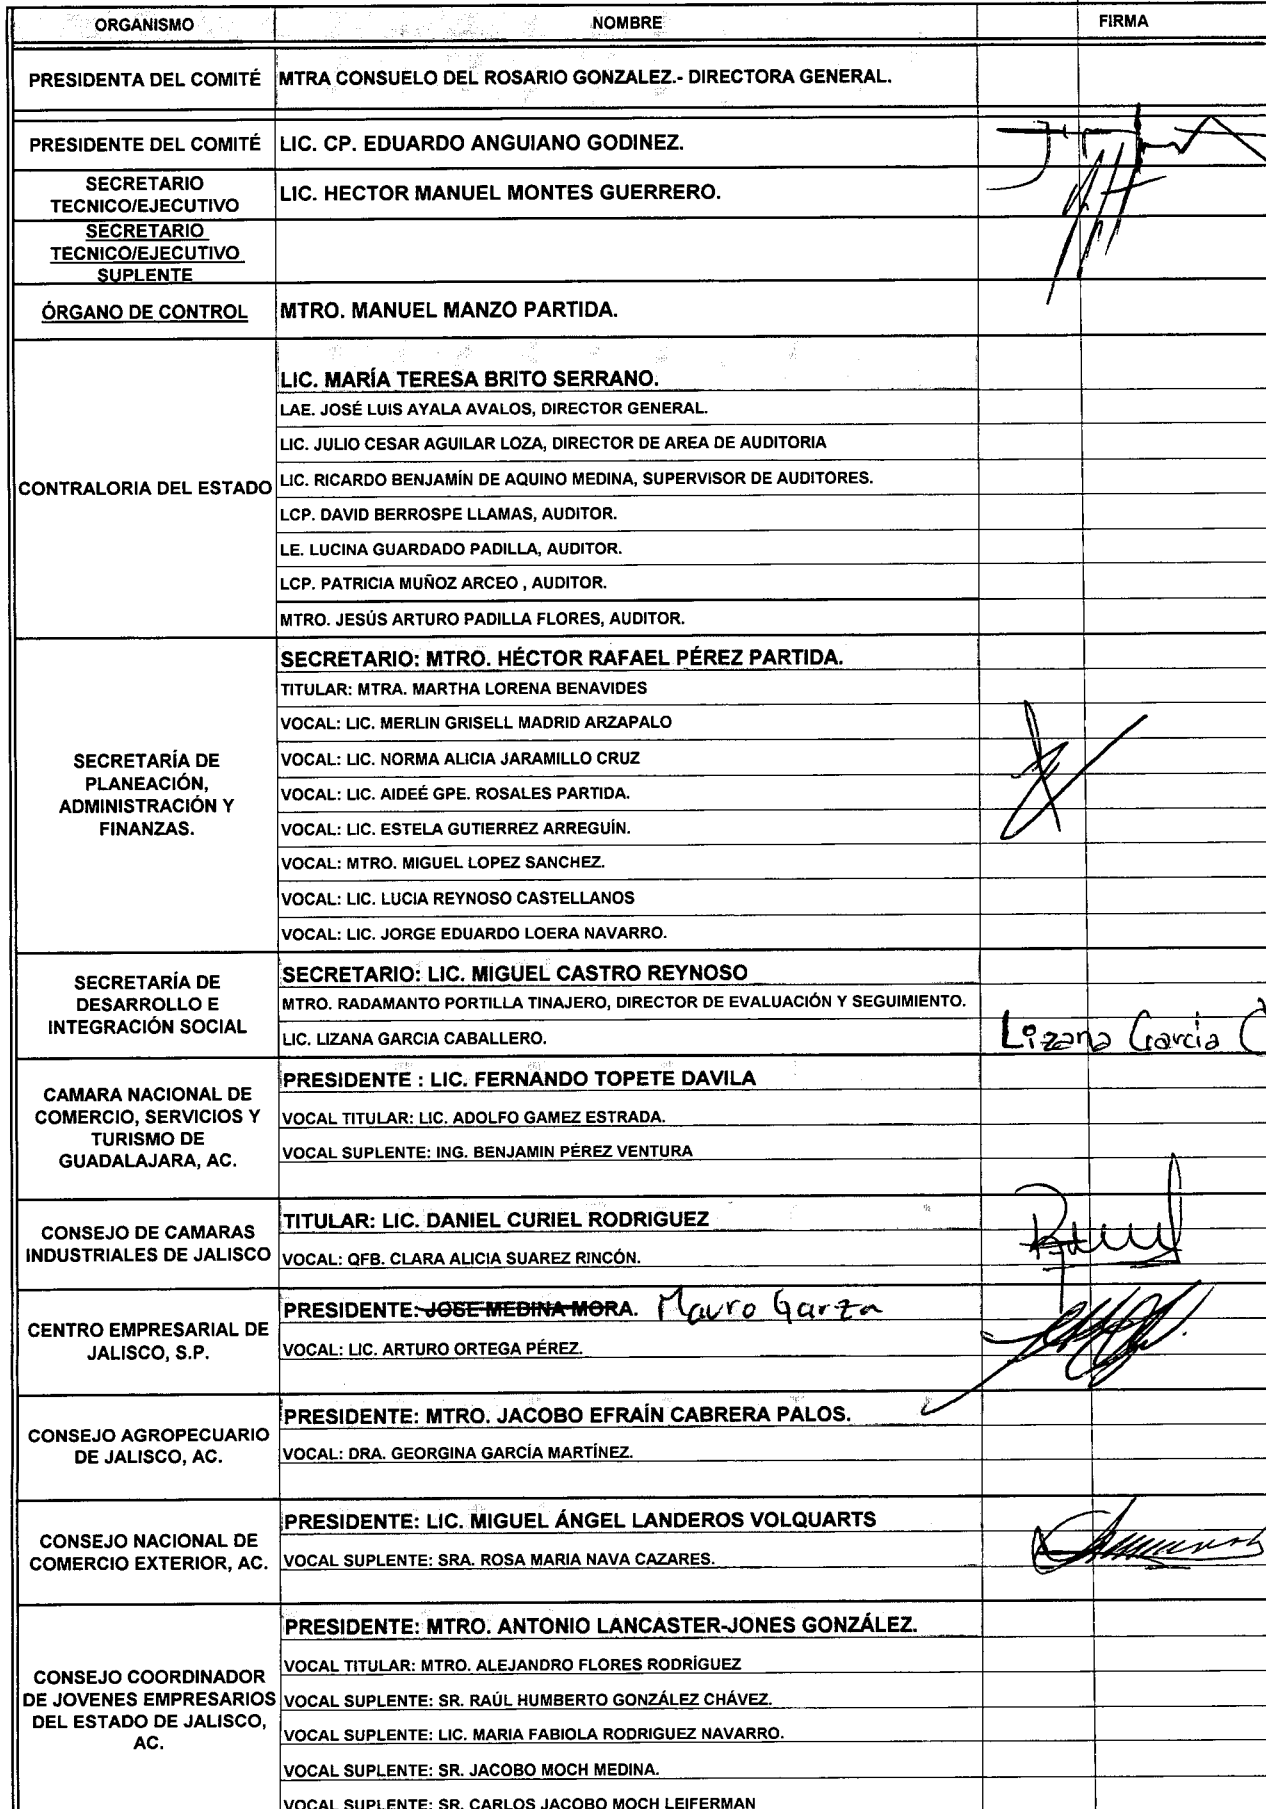 ORGANISMO NOMBRE FIRMA
PRESIDENTA DEL COMITÉ MTRA CONSUELO DEL ROSARIO GONZALEZ.- DIRECTORA GENERAL.
PRESIDENTE DEL COMITÉ LIC. CP. EDUARDO ANGUIANO GODINEZ.
SECRETARIO
TECNICO/EJECUTIVO
LIC. HECTOR MANUEL MONTES GUERRERO.
SECRETARIO
TECNICO/EJECUTIVO
SUPLENTE
ÓRGANO DE CONTROL MTRO. MANUEL MANZO PARTIDA.
CONTRALORIA DEL ESTADO
LIC. MARÍA TERESA BRITO SERRANO.
LAE. JOSÉ LUIS AYALA AVALOS, DIRECTOR GENERAL.
LIC. JULIO CESAR AGUILAR LOZA, DIRECTOR DE AREA DE AUDITORIA
LIC. RICARDO BENJAMÍN DE AQUINO MEDINA, SUPERVISOR DE AUDITORES.
LCP. DAVID BERROSPE LLAMAS, AUDITOR.
LE. LUCINA GUARDADO PADILLA, AUDITOR.
LCP. PATRICIA MUÑOZ ARCEO , AUDITOR.
MTRO. JESÚS ARTURO PADILLA FLORES, AUDITOR.
SECRETARÍA DE
PLANEACIÓN,
ADMINISTRACIÓN Y
FINANZAS.
SECRETARIO: MTRO. HÉCTOR RAFAEL PÉREZ PARTIDA.
TITULAR: MTRA. MARTHA LORENA BENAVIDES
VOCAL: LIC. MERLIN GRISELL MADRID ARZAPALO
VOCAL: LIC. NORMA ALICIA JARAMILLO CRUZ
VOCAL: LIC. AIDEÉ GPE. ROSALES PARTIDA.
VOCAL: LIC. ESTELA GUTIERREZ ARREGUÍN.
VOCAL: MTRO. MIGUEL LOPEZ SANCHEZ.
VOCAL: LIC. LUCIA REYNOSO CASTELLANOS
VOCAL: LIC. JORGE EDUARDO LOERA NAVARRO.
SECRETARÍA DE
DESARROLLO E
INTEGRACIÓN SOCIAL
SECRETARIO: LIC. MIGUEL CASTRO REYNOSO
MTRO. RADAMANTO PORTILLA TINAJERO, DIRECTOR DE EVALUACIÓN Y SEGUIMIENTO.
LIC. LIZANA GARCIA CABALLERO. Lizana Garcia C
CAMARA NACIONAL DE
COMERCIO, SERVICIOS Y
TURISMO DE
GUADALAJARA, AC.
PRESIDENTE : LIC. FERNANDO TOPETE DAVILA
VOCAL TITULAR: LIC. ADOLFO GAMEZ ESTRADA.
VOCAL SUPLENTE: ING. BENJAMIN PÉREZ VENTURA
CONSEJO DE CAMARAS
INDUSTRIALES DE JALISCO
TITULAR: LIC. DANIEL CURIEL RODRIGUEZ
VOCAL: QFB. CLARA ALICIA SUAREZ RINCÓN.
CENTRO EMPRESARIAL DE
JALISCO, S.P.
PRESIDENTE: JOSE MEDINA MORA. Mauro Garza
VOCAL: LIC. ARTURO ORTEGA PÉREZ.
CONSEJO AGROPECUARIO
DE JALISCO, AC.
PRESIDENTE: MTRO. JACOBO EFRAÍN CABRERA PALOS.
VOCAL: DRA. GEORGINA GARCÍA MARTÍNEZ.
CONSEJO NACIONAL DE
COMERCIO EXTERIOR, AC.
PRESIDENTE: LIC. MIGUEL ÁNGEL LANDEROS VOLQUARTS
VOCAL SUPLENTE: SRA. ROSA MARIA NAVA CAZARES.
CONSEJO COORDINADOR
DE JOVENES EMPRESARIOS
DEL ESTADO DE JALISCO,
AC.
PRESIDENTE: MTRO. ANTONIO LANCASTER-JONES GONZÁLEZ.
VOCAL TITULAR: MTRO. ALEJANDRO FLORES RODRÍGUEZ
VOCAL SUPLENTE: SR. RAÚL HUMBERTO GONZÁLEZ CHÁVEZ.
VOCAL SUPLENTE: LIC. MARIA FABIOLA RODRIGUEZ NAVARRO.
VOCAL SUPLENTE: SR. JACOBO MOCH MEDINA.
VOCAL SUPLENTE: SR. CARLOS JACOBO MOCH LEIFERMAN